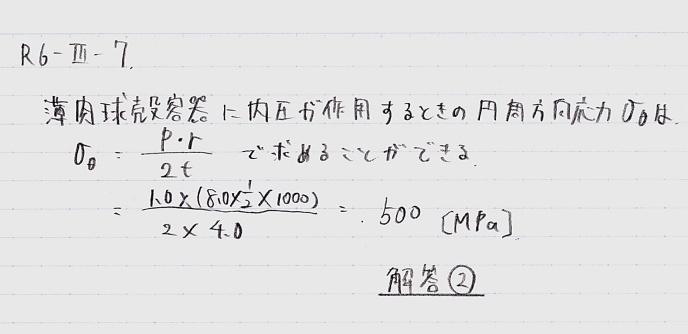 R6-Ⅲ-7.
薄肉球殻容器に内圧が作用するときの円周方向応力σθは.
σθ = P・r / 2t で求めることができる.
= 1.0×(8.0×1/2×1000) / 2×4.0 = 500 [MPa]
解答②